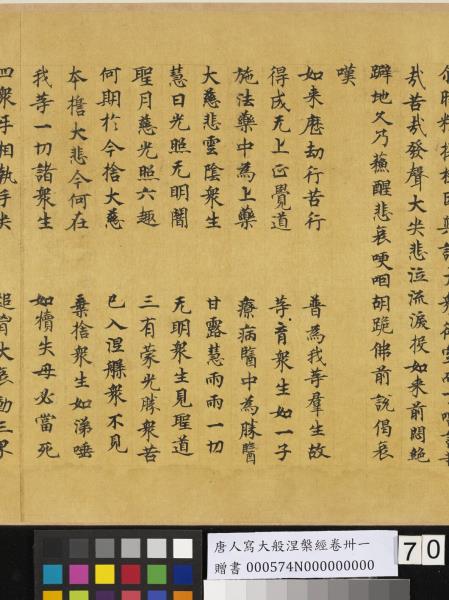 哉苦哉發聲大哭悲泣流淚投如來前悶絕
躃地久乃蘓醒悲哀哽咽胡跪佛前說偈哀
嘆
如来歷劫行苦行　普為我等羣生故
得成无上正覺道　等育衆生如一子
施法藥中為上藥　療病醫中為勝醫
大慈悲雲陰衆生　甘露慧雨雨一切
慧日光照无明闇　无明衆生見聖道
聖月慈光照六趣　三有蒙光勝衆苦
何期於今捨大慈　已入涅槃衆不見
本擔大悲今何在　棄捨衆生如涕唾
我等一切諸衆生　如犢失母必當死
四衆乎相執手哭　大哀動三界
唐人寫大般涅槃經卷卅一
贈書 000574N000000000
70